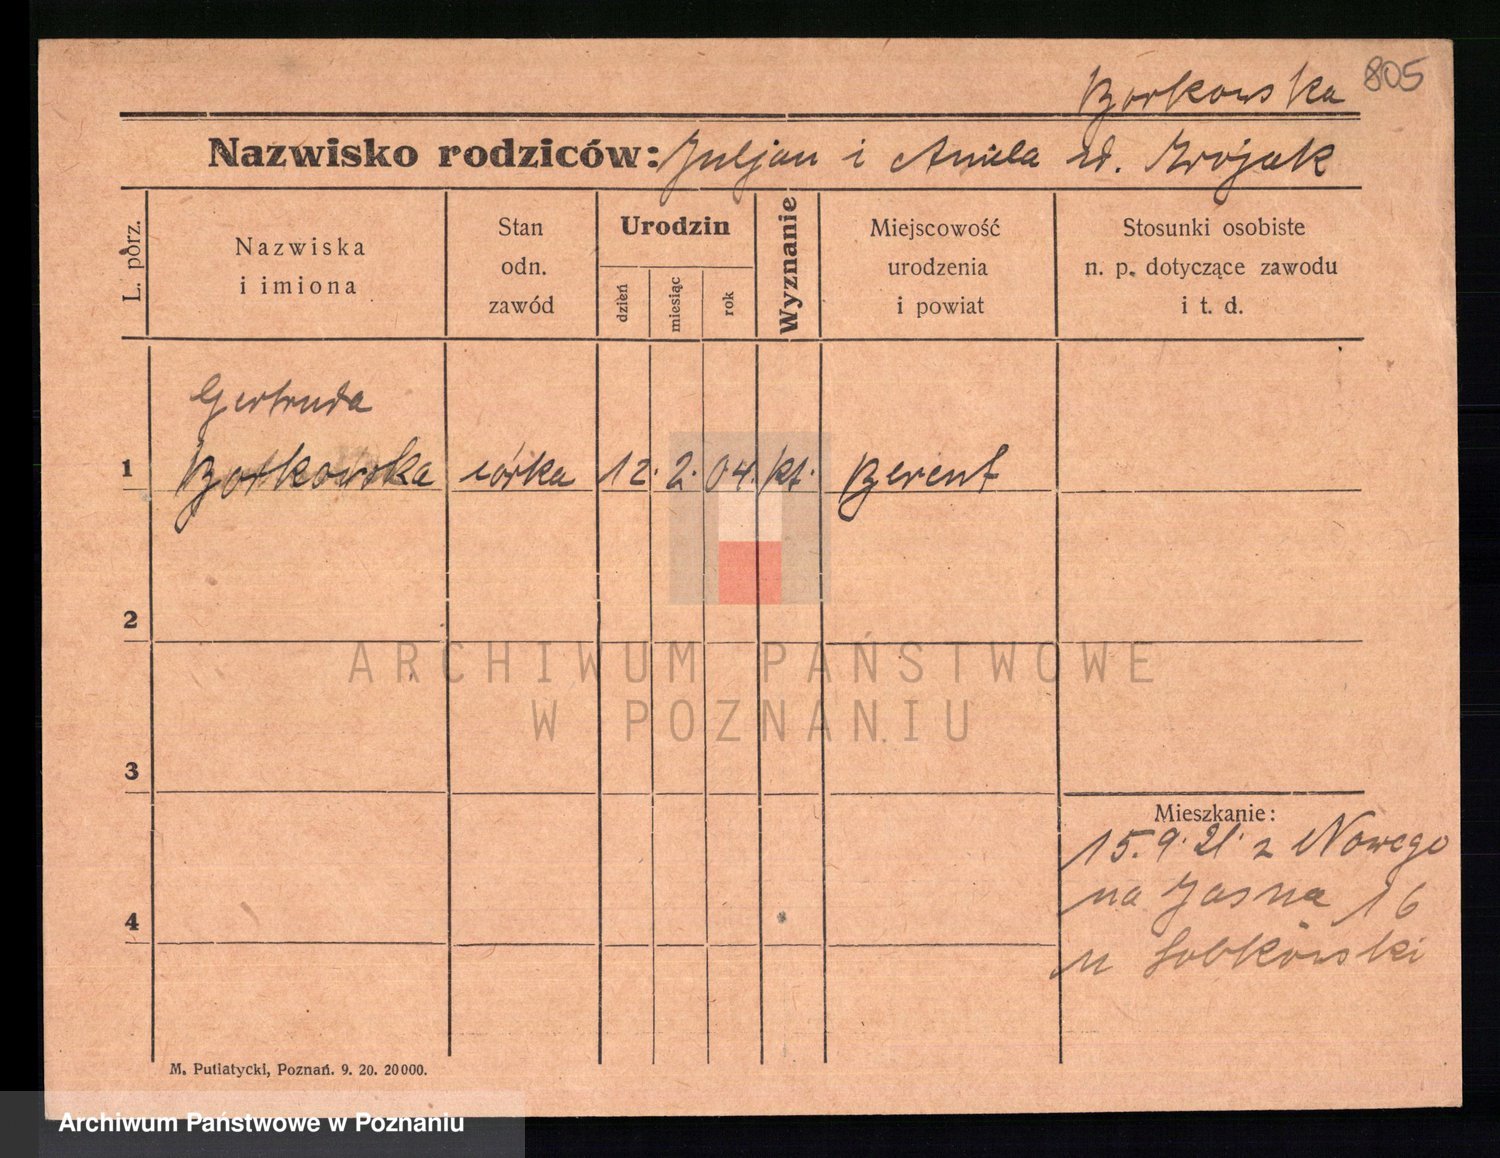 Borkowska 805
Nazwisko rodziców: Juljan i Aniela zd. Krojak
L. porz.
Nazwiska
i imiona
Stan
odn.
zawód
Urodzin
dzień
miesiąc
rok
Wyznanie
Miejscowość
urodzenia
i powiat
Stosunki osobiste
n. p. dotyczące zawodu
i t. d.
Gertruda
1 Borkowska córka 12. 2. 04. kt. Berent
2
ARCHIWUM PAŃSTWOWE
W POZNANIU
3
Mieszkanie:
15.9.21. z Nowego
na Jasna 16
4
u Sobkowski
M. Putiatycki, Poznań. 9. 20. 20000.
Archiwum Państwowe w Poznaniu